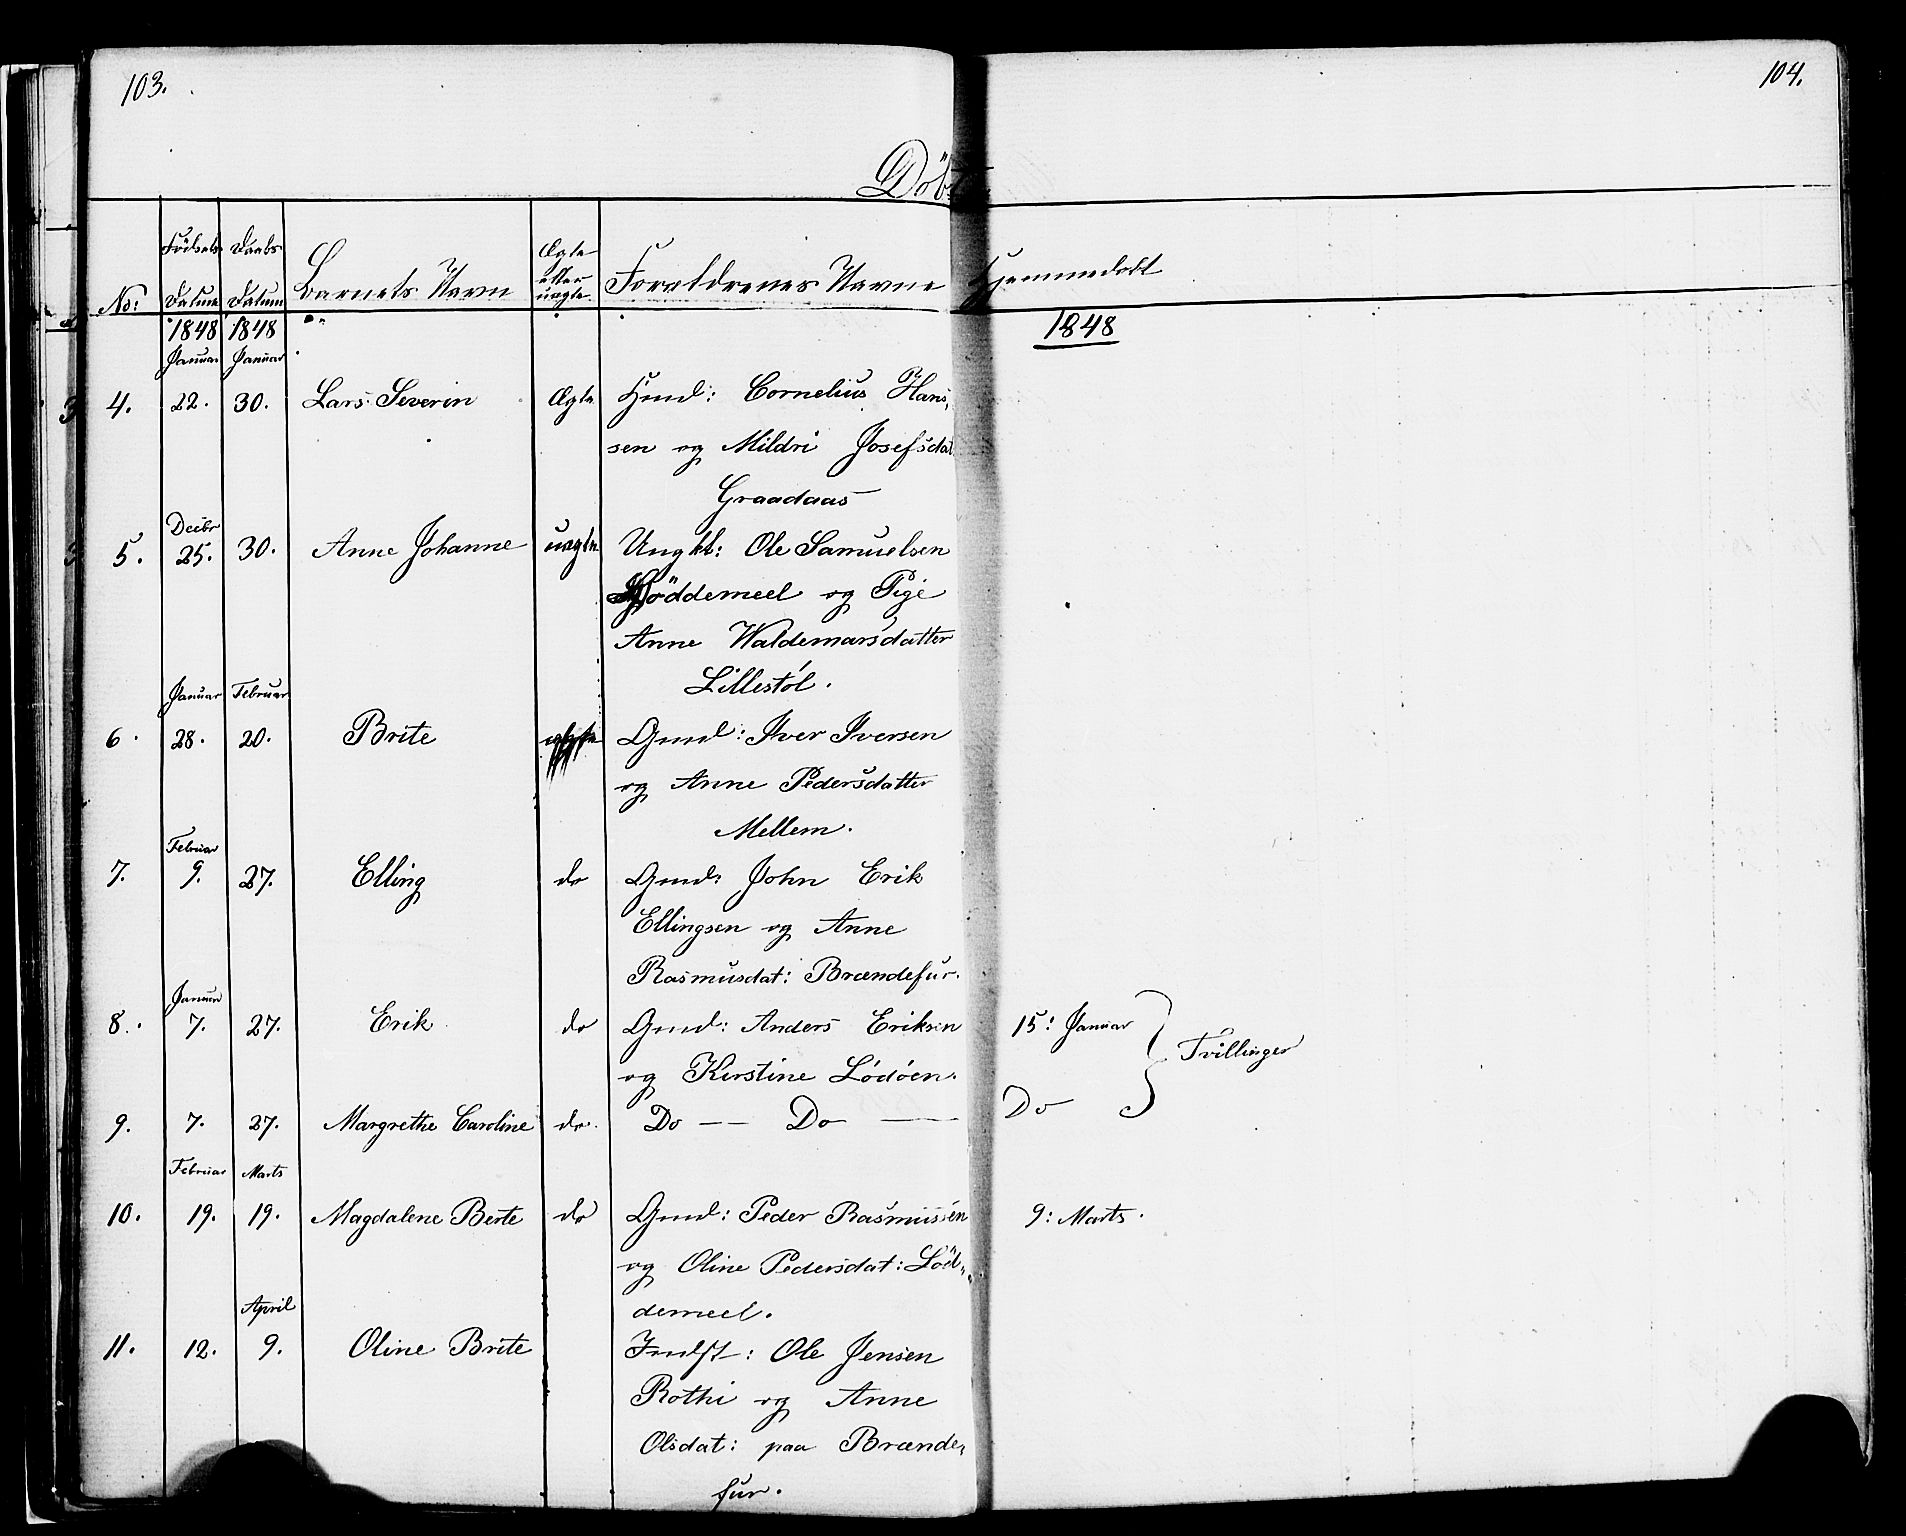 103.
104.
Döbte
No:
Födsels Datum
Daabs Datum
Barnets Navn
Ægte etter uægte
Foreldrenes Navne
Hjemmedöbt
1848 1848
1848
Januar Januar
4. 22. 30. Lars Severin Ægte Gmd: Cornelius Hans,
sen og Mildri Josefsdat
Graadaas
Decbr
5. 25. 30. Anne Johanne uægte Ungkl: Ole Samuelsen
Höddemeel og Pige
Anne Waldemarsdatter
Lillestöl.
Januar Februar
6. 28. 20. Brite ægte Gmd: Iver Iversen
og Anne Pedersdatter
Mellem.
Februar
7. 9. 27. Elling do Gmd: John Erik
Ellingsen og Anne
Rasmusdat: Brændefur.
Januar
8. 7. 27. Erik do Gmd: Anders Eriksen 15: Januar
Tvillinger
og Kirstine Lödöen.
9. 7. 27. Margrethe Caroline do. Do — Do — Do
Februar Marts
10. 19. 19. Magdalene Berte do Gmd: Peder Rasmussen 9: Marts.
og Oline Pedersdat: Löd-
demeel.
April
11. 12. 9. Oline Brite Indst: Ole Jensen
Rothi og Anne
Olsdat: paa Brænde,
fur.